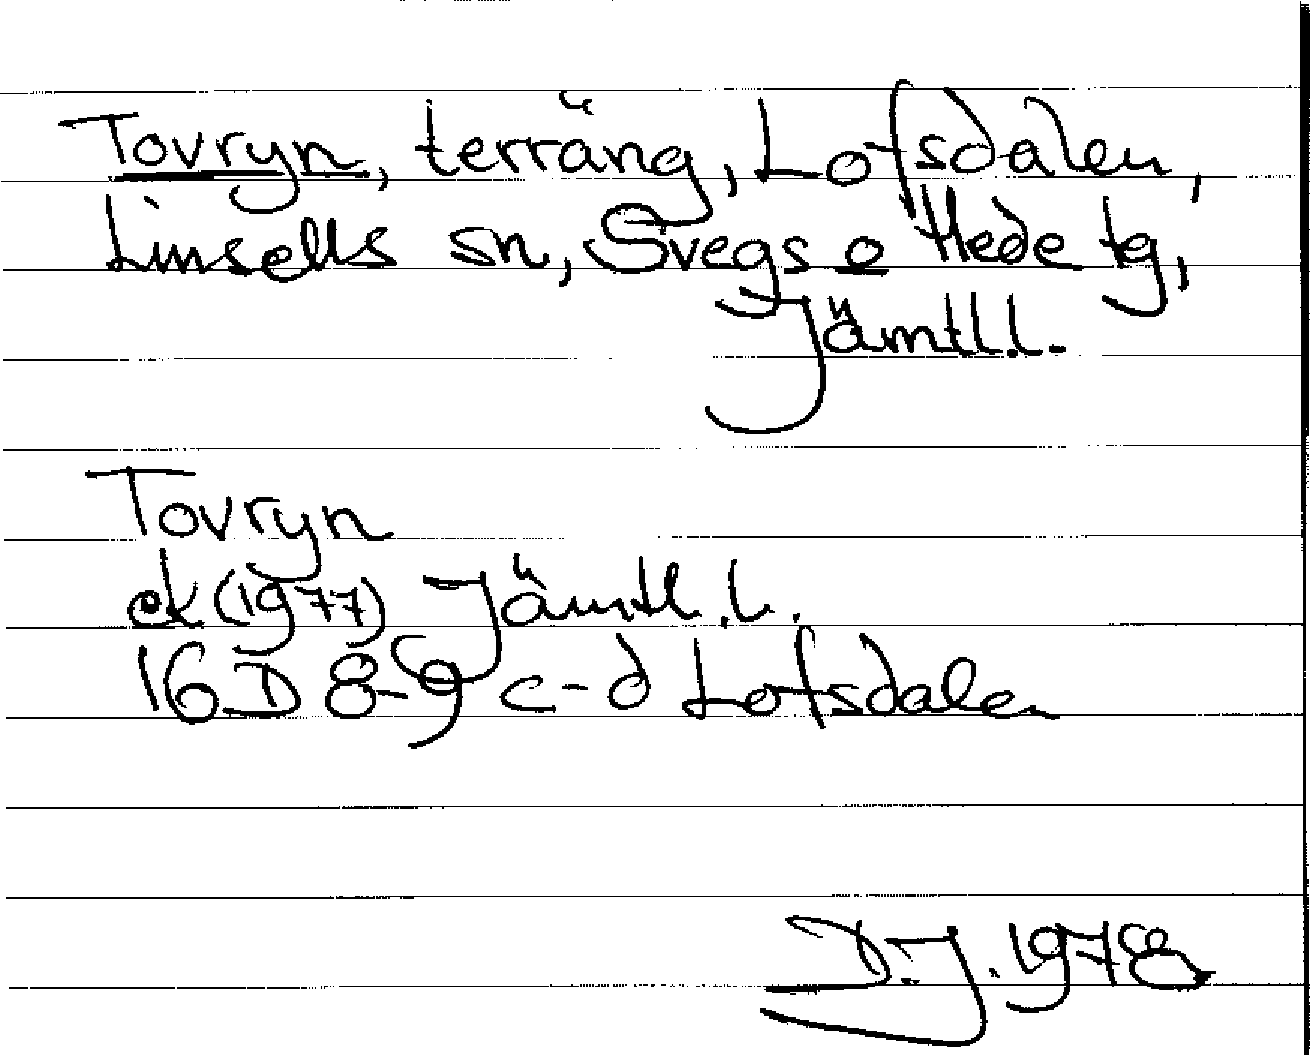 Tovryn, terräng, Lofsdalen,
Linsells sn, Svegs o Hede tg,
Jämtl.l.
Tovryn
ek (1977) Jämtl.l.
16 D 8-9 c-d Lofsdalen
D.J. 1978